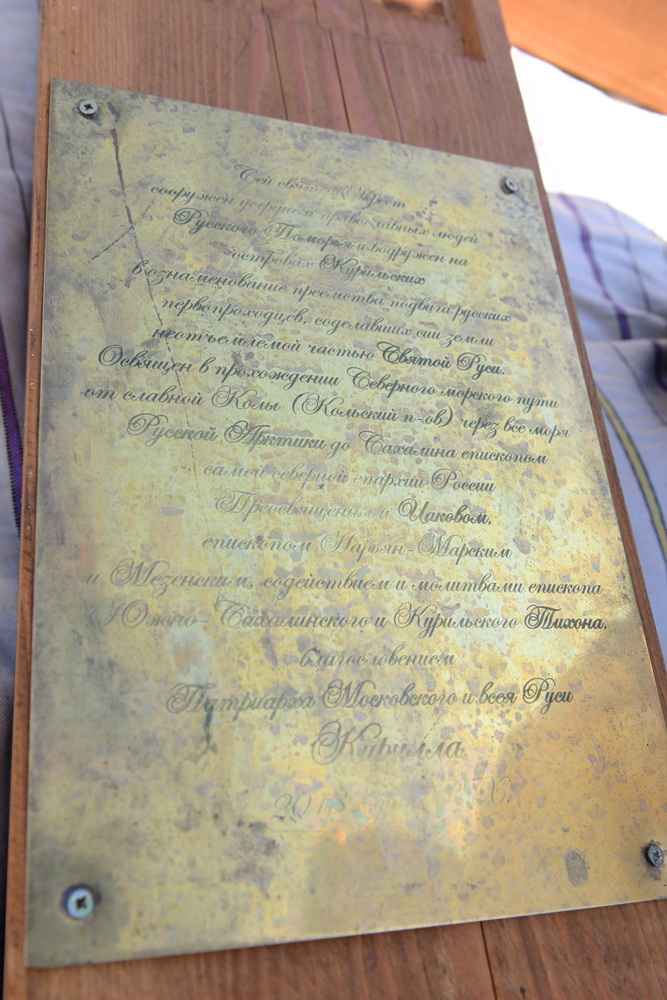 Сей святой Крест
сооружен усердием православных людей
Русского Поморья и водружен на
островах Курильских
в ознаменование преемства подвига русских
первопроходцев, соделавших сии земли
неотъемлемой частью Святой Руси.
Освящен в прохождении Северного морского пути
от славной Колы (Кольский п-ов) через все моря
Русской Арктики до Сахалина епископом
самой северной епархии России
Преосвященным Иаковом,
епископом Нарьян-Марским
и Мезенским, содействием и молитвами епископа
Южно-Сахалинского и Курильского Тихона,
благословением
Патриарха Московского и всея Руси
Кирилла
2013 Р. Х.